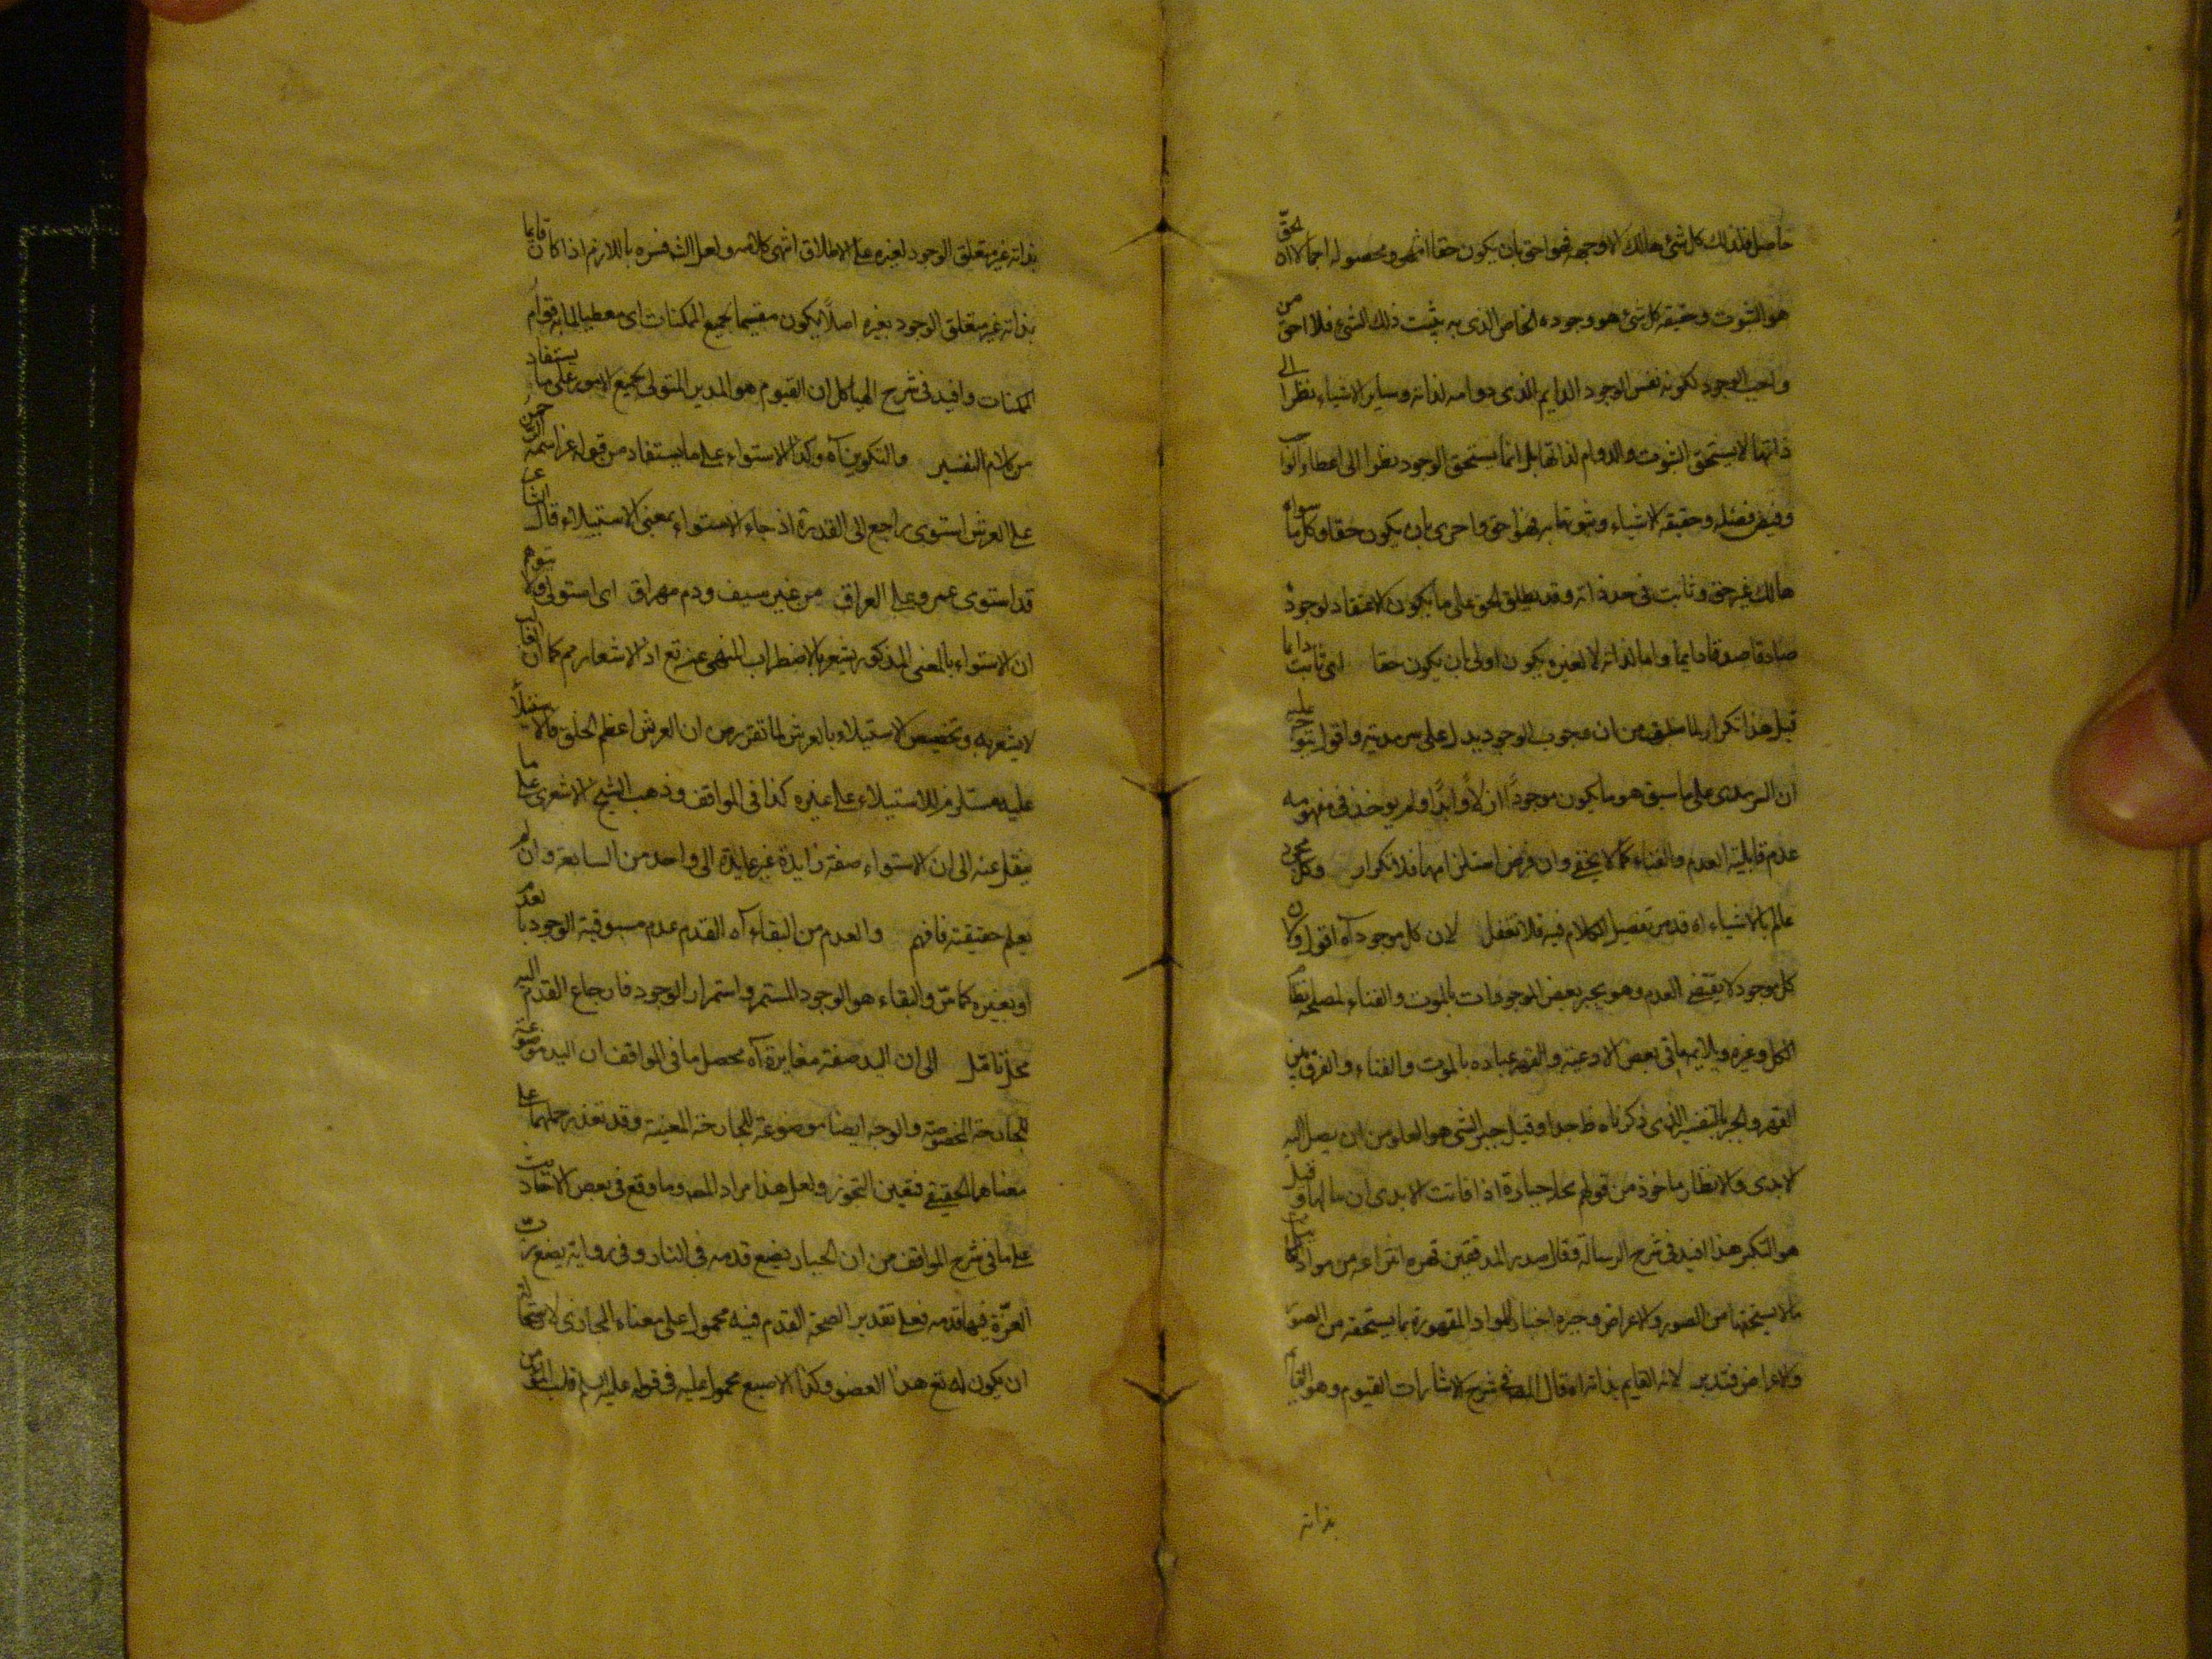 حاصل فلذلك كل شئ هالك الا وجهه فهو احق بان يكون حقا انتهى ومحصوله اجمالا ان الحق
هو الثبوت وحقيقة كل شئ هو وجوده الخاص الذى به يثبت ذلك الشئ فلا احق من
واجب الوجود لكونه نفس الوجود الدايم الذى دوامه لذاته وساير الاشياء نظرا الى
ذاتها لا يستحق الثبوت والدوام لذاتها بل انما يستحق الوجود نظرا الى اعطاء الواجب
وفيض فضله وحقيقة الاشياء وثبوتها به فهو احق واحرى بان يكون حقا وكل ما سواه
هالك غير حق وثابت فى حد ذاته وقد يطلق الحق على ما يكون الاعتقاد لوجوده
صادقا صدقا دايما واما لذاته لا لغيره يكون اولى بان يكون حقا اى ثابت دايما
قيل هذا تكرار لما سبق من ان وجوب الوجود يدل على سرمديته واقول يتوجه عليه
ان السرمدى على ما سبق هو ما يكون موجودًا ازلًا وابدًا ولم يوخذ فى مفهومه
عدم قابلية العدم والفناء كما لا يخفى وان فرض استلزامهما فلا تكرار وكل مجرد
عالم بالاشياء اه قد مر تفصيل الكلام فيه فلا تغفل لان كل موجود آه اقول ولان
كل موجود لا يقتضى العدم وهو يجبر بعض الموجودات بالموت والفناء لمصلحة نظام
الكل وغيره ويلايمه ما فى بعض الادعية والقهر عباده بالموت والفناء والفرق بين
القهر والجبر بالتفسير الذى ذكرناه ظ جدا وقيل جبر الشى هو العلو من ان يصل اليه
الايدى والانظار ماخوذ من قولهم نخلة جبارة اذا فاتت الايدى ان ينالها وقيل
هو التكبر هذا افيد فى شرح الرسالة فقال صدر المدققين قهره انتزاعه من مواد الكاينات
ما لا يستحقها من الصور والاعراض وجبره اجبار المواد المقهورة بما يستحقه من الصور
والاعراض فتدبر لانه القايم بذاته اه قال المصـ فى شرح الاشارات القيوم وهو القايم
بذاته
بذاته غير متعلق الوجود لغيره على الاطلاق انتهى كلامه ولعل الش فسره باللازم اذا كان قايما
بذاته غير متعلق الوجود بغيره اصلًا يكون مقيما لجميع الممكنات اى معطيا لما به قوام
الممكنات وافيد فى شرح الهياكل ان القيوم هو المدبر المتولى لجميع الامور على ما يستفاد
من كلام التفسير والتكوين آه وكذا الاستواء على ما يستفاد من قوله عز اسمه الرحمن
على العرش استوى راجع الى القدرة اذ جاء الاستواء بمعنى الاستيلاء قال الشاعر
قد استوى عمرو على العراق من غير سيف ودم مهراق اى استولى ولا يتوهم
ان الاستواء بالمعنى المذكور يشعر بالاضطراب المنهى عنه تع اذ الاشعار مم كما ان الغالب
لا يشعر به وتخصيص الاستيلاء بالعرش لما تقرر من ان العرش اعظم الخلق فالاستيلاء
عليه مستلزم للاستيلاء على غيره كذا فى المواقف وذهب الشيخ الاشعرى على ما
ينقل عنه الى ان الاستواء صفة زايدة غير عايدة الى واحد من السابعة وان لم
يعلم حقيقته فافهم والعدم من البقاء آه القدم عدم مسبوقية الوجود بالعدم
او بغيره كما مرّ والبقاء هو الوجود المستمر واستمرار الوجود فارجاع القدم اليه
محل تامّل الى ان اليد صفة مغايرة آه محصل ما فى المواقف ان اليد موضوعة
للجارحة المخصوصة والوجه ايضا موضوعة للجارحة المعينة وقد تعذر حملهما على
معناهما الحقيقى فتعين التجوز ولعل هذا مراد المصـ وما وقع فى بعض الاحاديث
على ما فى شرح المواقف من ان الجبار يضع قدمه فى النار وفى رواية يضع رب
العزّة فيها قدمه فعلى تقدير الصحة القدم فيه محمول على معناه المجازى لاستحالة
ان يكون له تع هذا العضو وكذا الاصبع محمول عليه فى قوله عليه السلم قلب المؤمن